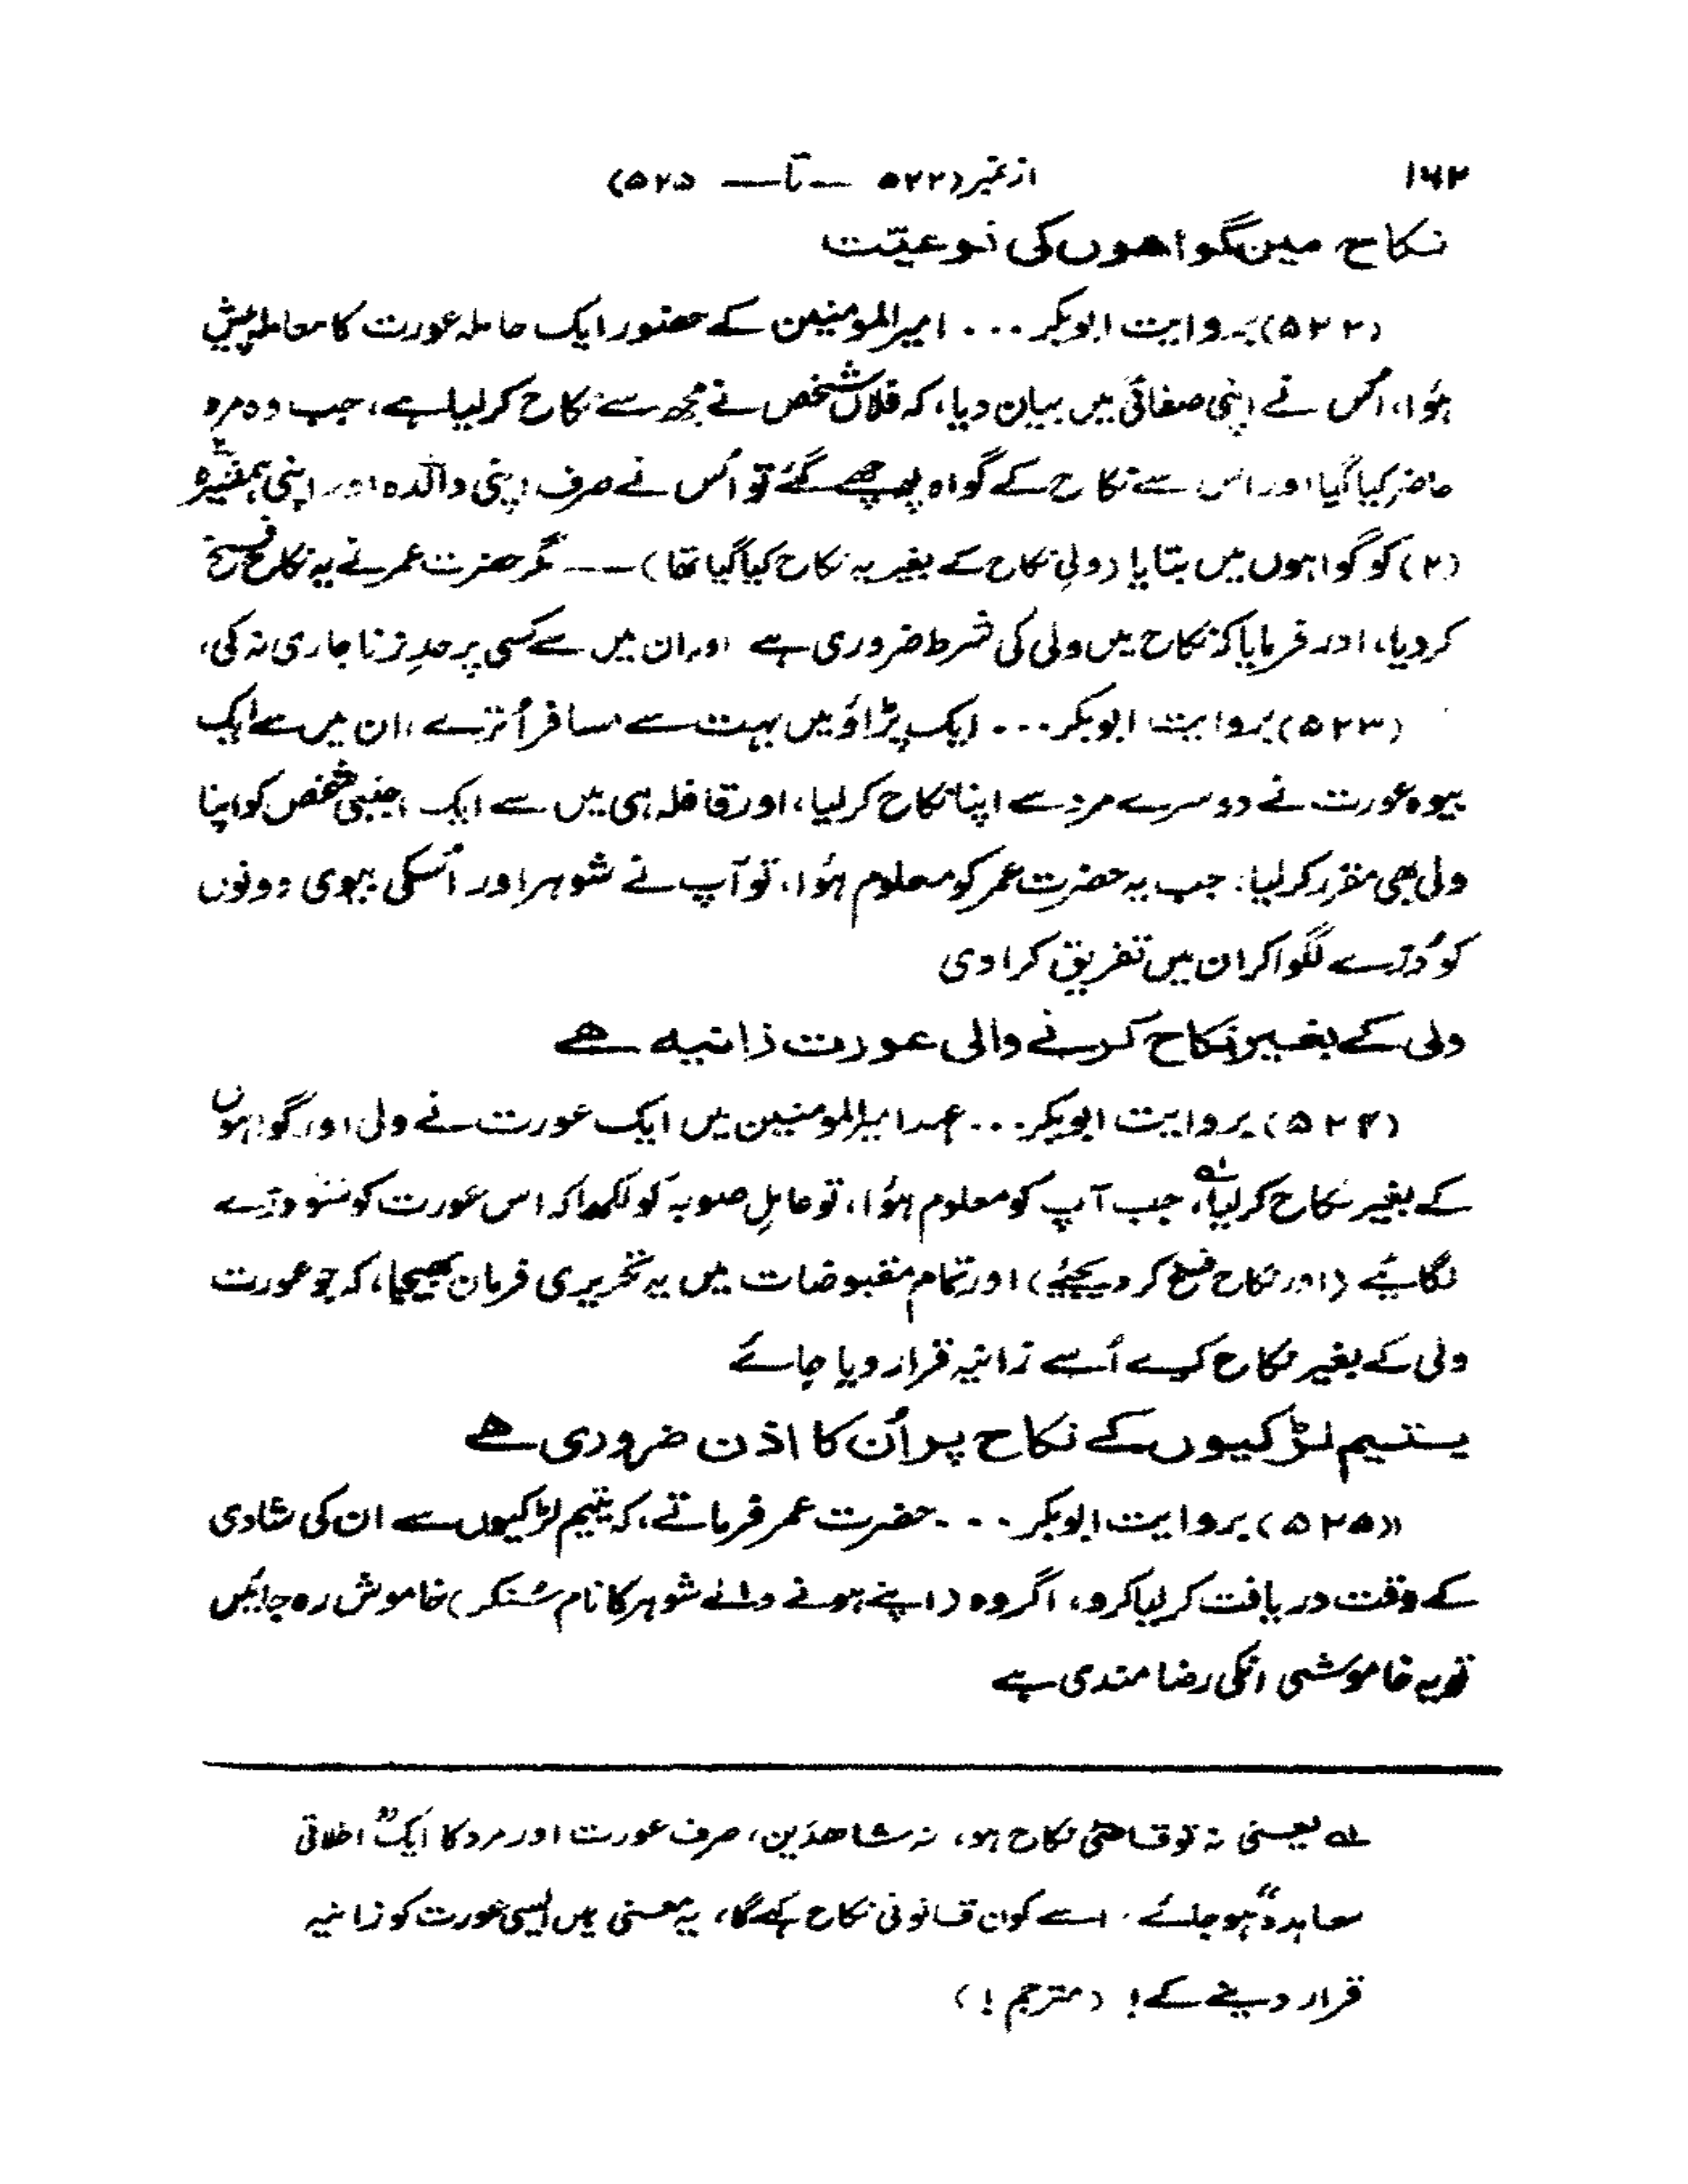 ۱۶۲
از نمبر (۵۲۲ — تا — ۵۲۵)
نکاح میں گواہوں کی نوعیّت
(۵۲۲) بروایت ابوبکر ... امیرالمومنین کے حضور ایک حاملہ عورت کا معاملہ پیش
ہُوا، اُس نے اپنی صفائی میں بیان دیا، کہ فلاں شخص نے مجھ سے نکاح کر لیا ہے، جب وہ مرد
حاضر کیا گیا اور اس سے نکاح کے گواہ پوچھے گئے تو اُس نے صرف اپنی والدہ اور اپنی ہمشیرہ
(۲) کو گواہوں میں بتایا (ولیِ نکاح کے بغیر یہ نکاح کیا گیا تھا) —— مگر حضرت عمر نے یہ نکاح فسخ
کر دیا، اور فرمایا کہ نکاح میں ولی کی شرط ضروری ہے اور ان میں سے کسی پر حدِ زنا جاری نہ کی،
(۵۲۳) بروایت ابوبکر ... ایک پڑاؤ میں بہت سے مسافر اُترے، ان میں سے ایک
بیوہ عورت نے دوسرے مرد سے اپنا نکاح کر لیا، اور قافلہ ہی میں سے ایک اجنبی شخص کو اپنا
ولی بھی مقرر کر لیا، جب یہ حضرت عمر کو معلوم ہُوا، تو آپ نے شوہر اور اُسکی بیوی دونوں
کو دُرّے لگوا کر ان میں تفریق کرا دی
ولی کے بغیر نکاح کرنے والی عورت زانیہ ہے
(۵۲۴) بروایت ابوبکر ... عہد امیرالمومنین میں ایک عورت نے ولی اور گواہوں
کے بغیر نکاح کر لیا؂۱، جب آپ کو معلوم ہُوا، تو عاملِ صوبہ کو لکھا کہ اس عورت کو سَو دُرّے
لگائیے (اور نکاح فسخ کر دیجئے) اور تمام مقبوضات میں یہ تحریری فرمان بھیجا، کہ جو عورت
ولی کے بغیر نکاح کرے اُسے زانیہ قرار دیا جائے
یتیم لڑکیوں کے نکاح پر اُن کا اذن ضروری ہے
(۵۲۵) بروایت ابوبکر ... حضرت عمر فرماتے، کہ یتیم لڑکیوں سے ان کی شادی
کے وقت دریافت کر لیا کرو، اگر وہ (اپنے ہونے والے شوہر کا نام سُنکر) خاموش رہ جائیں
تو یہ خاموشی انکی رضا مندی ہے
؂۱ یعنی نہ تو قاضئ نکاح ہو، نہ شاھدَین، صرف عورت اور مرد کا ایک "اخلاقی
معاہدہ" ہو جائے، اسے کون قانونی نکاح کہے گا، یہ معنی ہیں ایسی عورت کو زانیہ
قرار دینے کے! (مترجم!)